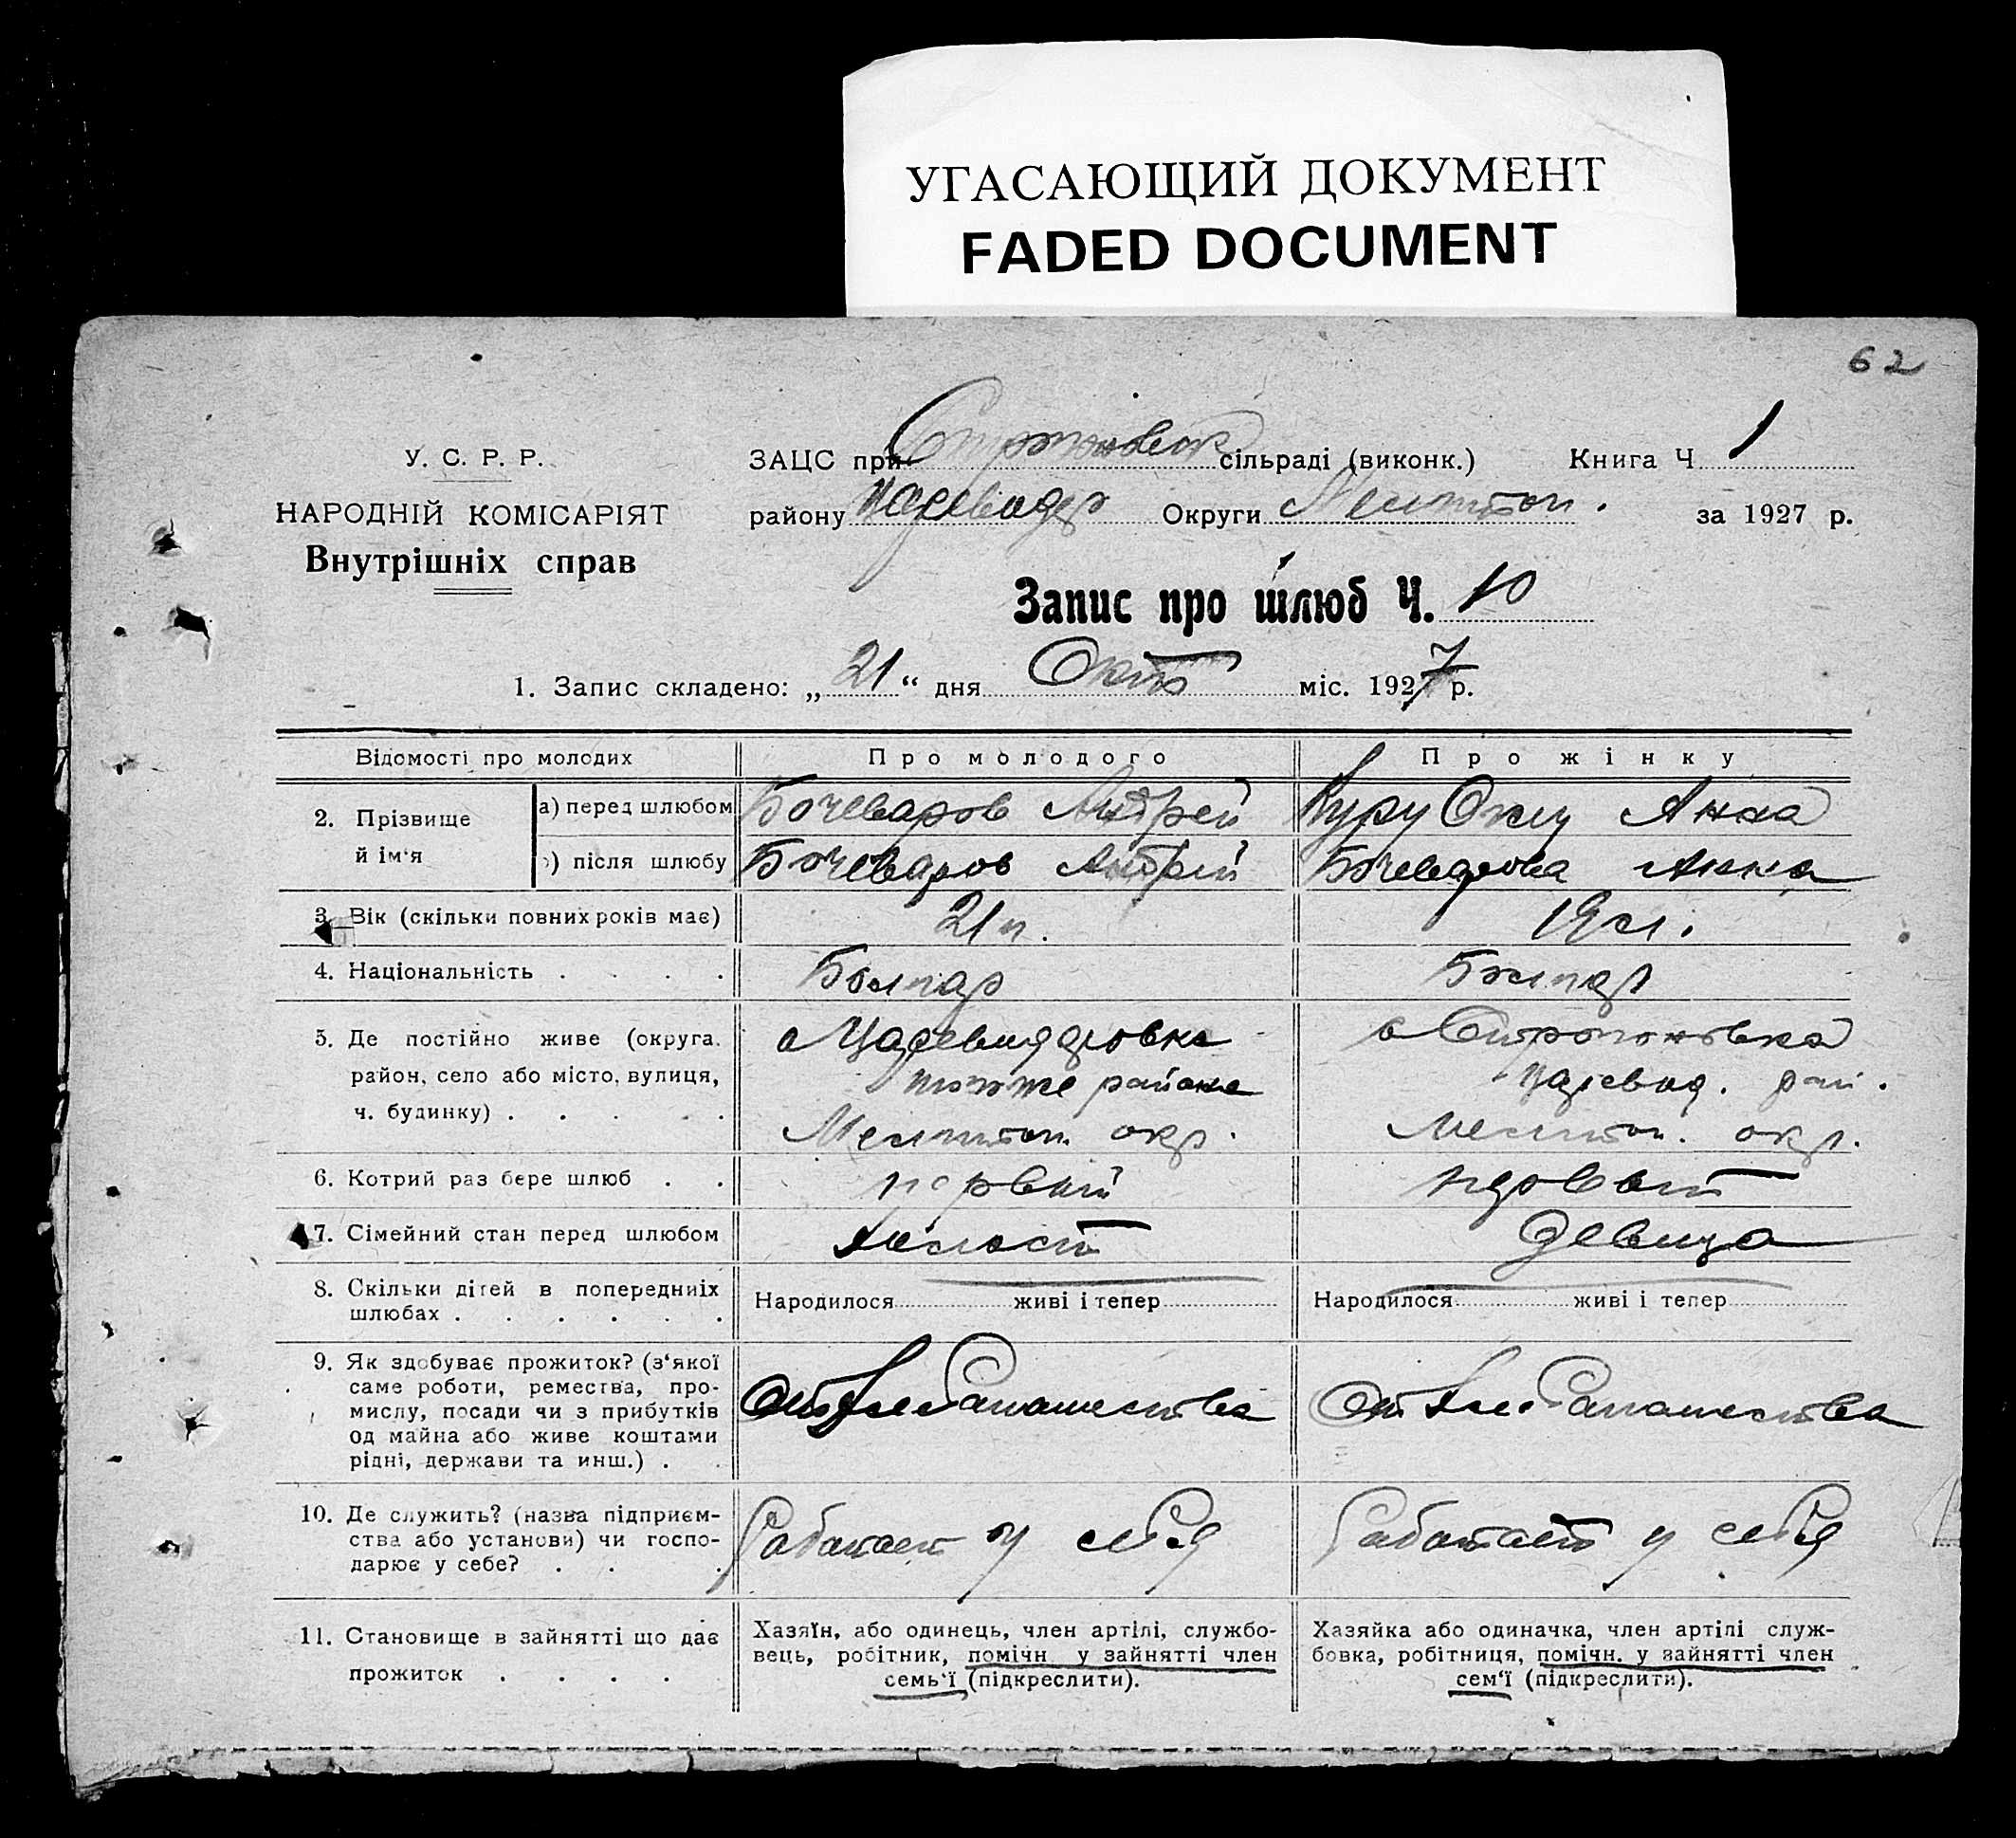 УГАСАЮЩИЙ ДОКУМЕНТ
FADED DOCUMENT
62
У. С. Р. Р.
НАРОДНІЙ КОМІСАРІЯТ
Внутрішніх справ
ЗАЦС при сільраді (виконк.) Книга Ч 1
району Округи Мелитоп. за 1927 р.
Запис про шлюб Ч. 10
1. Запис складено: „ 21 “ дня Окт міс. 1927 р.
Відомості про молодих Про молодого Про жінку
2. Прізвище й ім‘я
а) перед шлюбом Бочеваров Андрей Куру Оглу Анна
) після шлюбу Бочеваров Андрей Бочеварова Анна
3. Вік (скільки повних років має) 21 л. 19 л.
4. Національність . . . . Болгар Болгар
5. Де постійно живе (округа, район, село або місто, вулиця, ч. будинку) . . .
с Царевидаровка
тогоже района
Мелитоп. окр.
с Строгоновка
Царевод. рай.
Мелитоп. окр.
6. Котрий раз бере шлюб . . первий первый
7. Сімейний стан перед шлюбом холост девица
8. Скільки дітей в попередниіх шлюбах . . . . . .
Народилося живі і тепер Народилося живі і тепер
9. Як здобуває прожиток? (з‘якої
саме роботи, ремества, про-
мислу, посади чи з прибутків
од майна або живе коштами
рідні, держави та инш.) .
От Хлебопашества От Хлебопашества
10. Де служить? (назва підприєм-
ства або установи) чи госпо-
дарює у себе? . . .
Работает у себя Работает у себя
11. Становище в зайнятті що дає
прожиток . . . .
Хазяїн, або одинець, член артілі, службо-
вець, робітник, помічн. у зайнятті член
семь‘ї (підкреслити).
Хазяйка або одиначка, член артілі служ-
бовка, робітниця, помічн. у зайнятті член
сем‘ї (підкреслити).